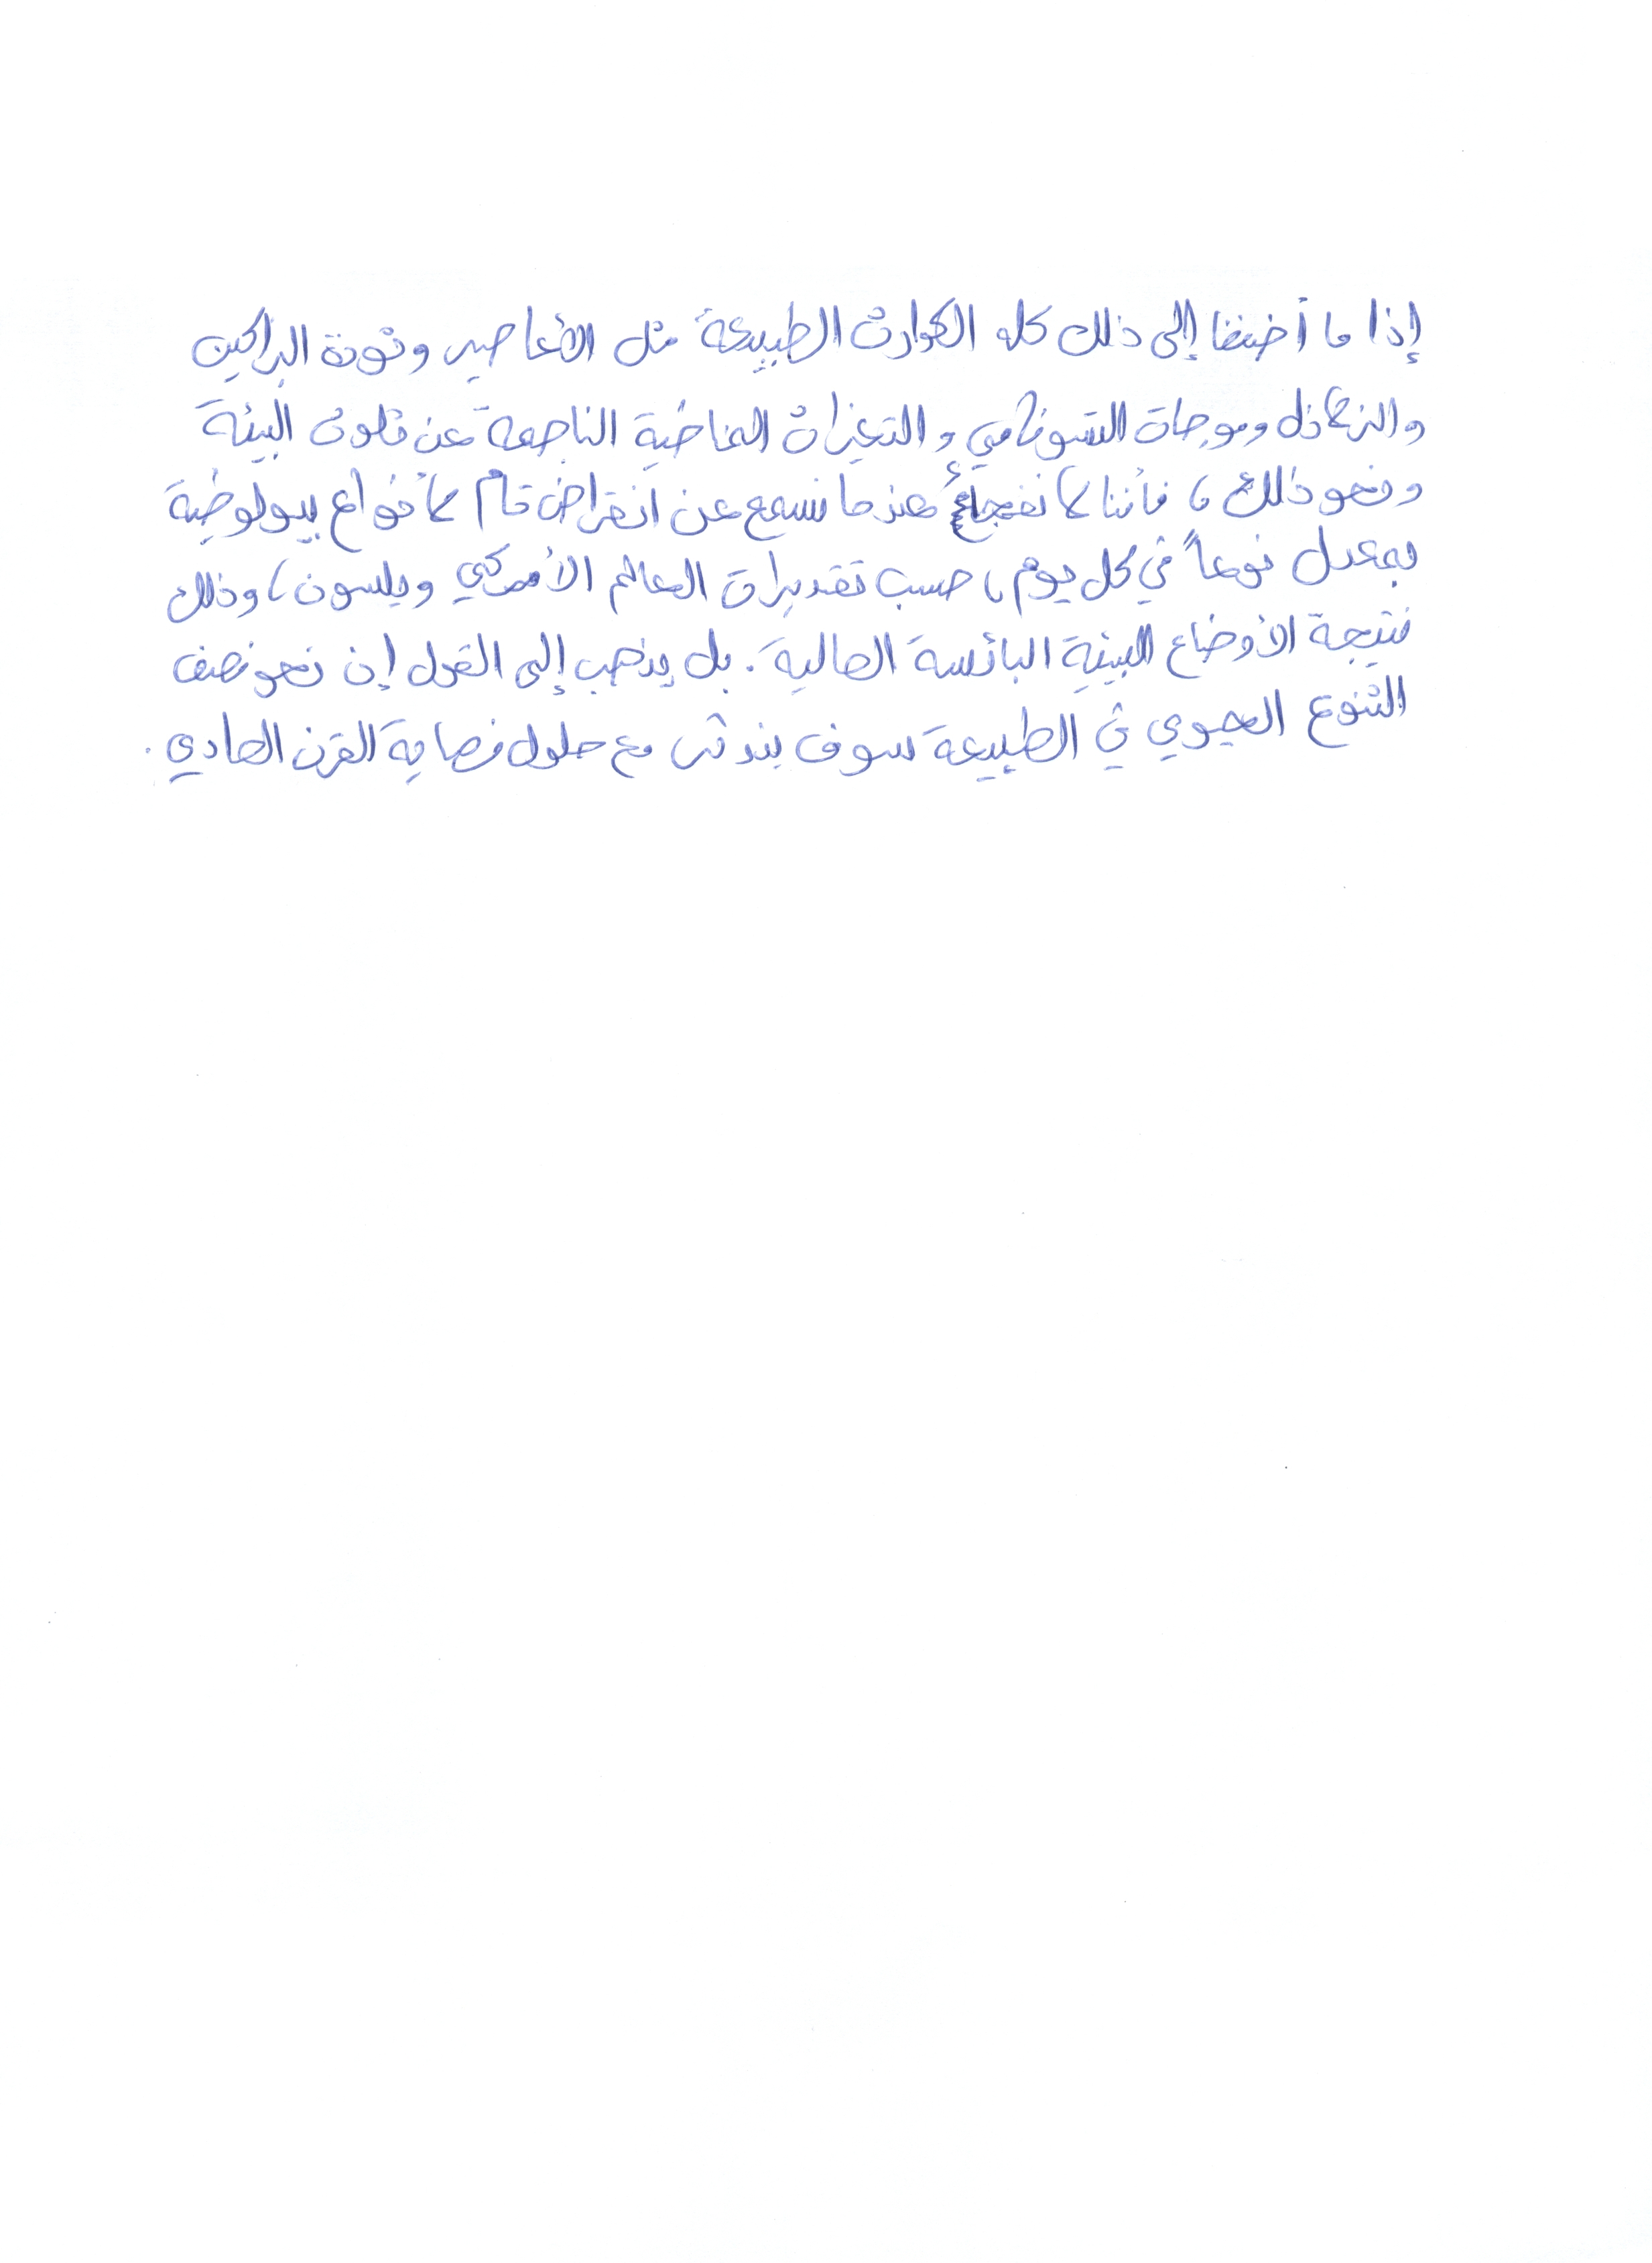 إذا ما أضفنا إلى ذلك كله الكوارث الطبيعة مثل الأعاصير وثورة البراكين
والزلازل وموجات التسونامي والتغيرات المناخية الناجمة عن تلوث البيئة
ونحو ذلك، فأننا لا نفجأ عندما نسمع عن انقراض تام لأنواع بيولوجية
بمعدل نوعاً في كل يوم، حسب تقديرات العالم الأمركي ويلسون، وذلك
نتيجة الأوضاع البيئية البائسة الحالية. بل يذهب إلى القول إن نحو نصف
التنوع الحيوي في الطبيعة سوف يندثر مع حلول نهاية القرن الحادي.